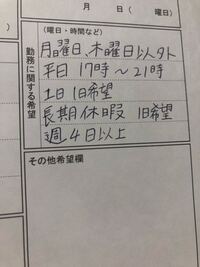 月 日（ 曜日）
（曜日・時間など）
勤務に関する希望
月曜日、木曜日以外
平日 17時～21時
土日 1日希望
長期休暇 1日希望
週4日以上
その他希望欄